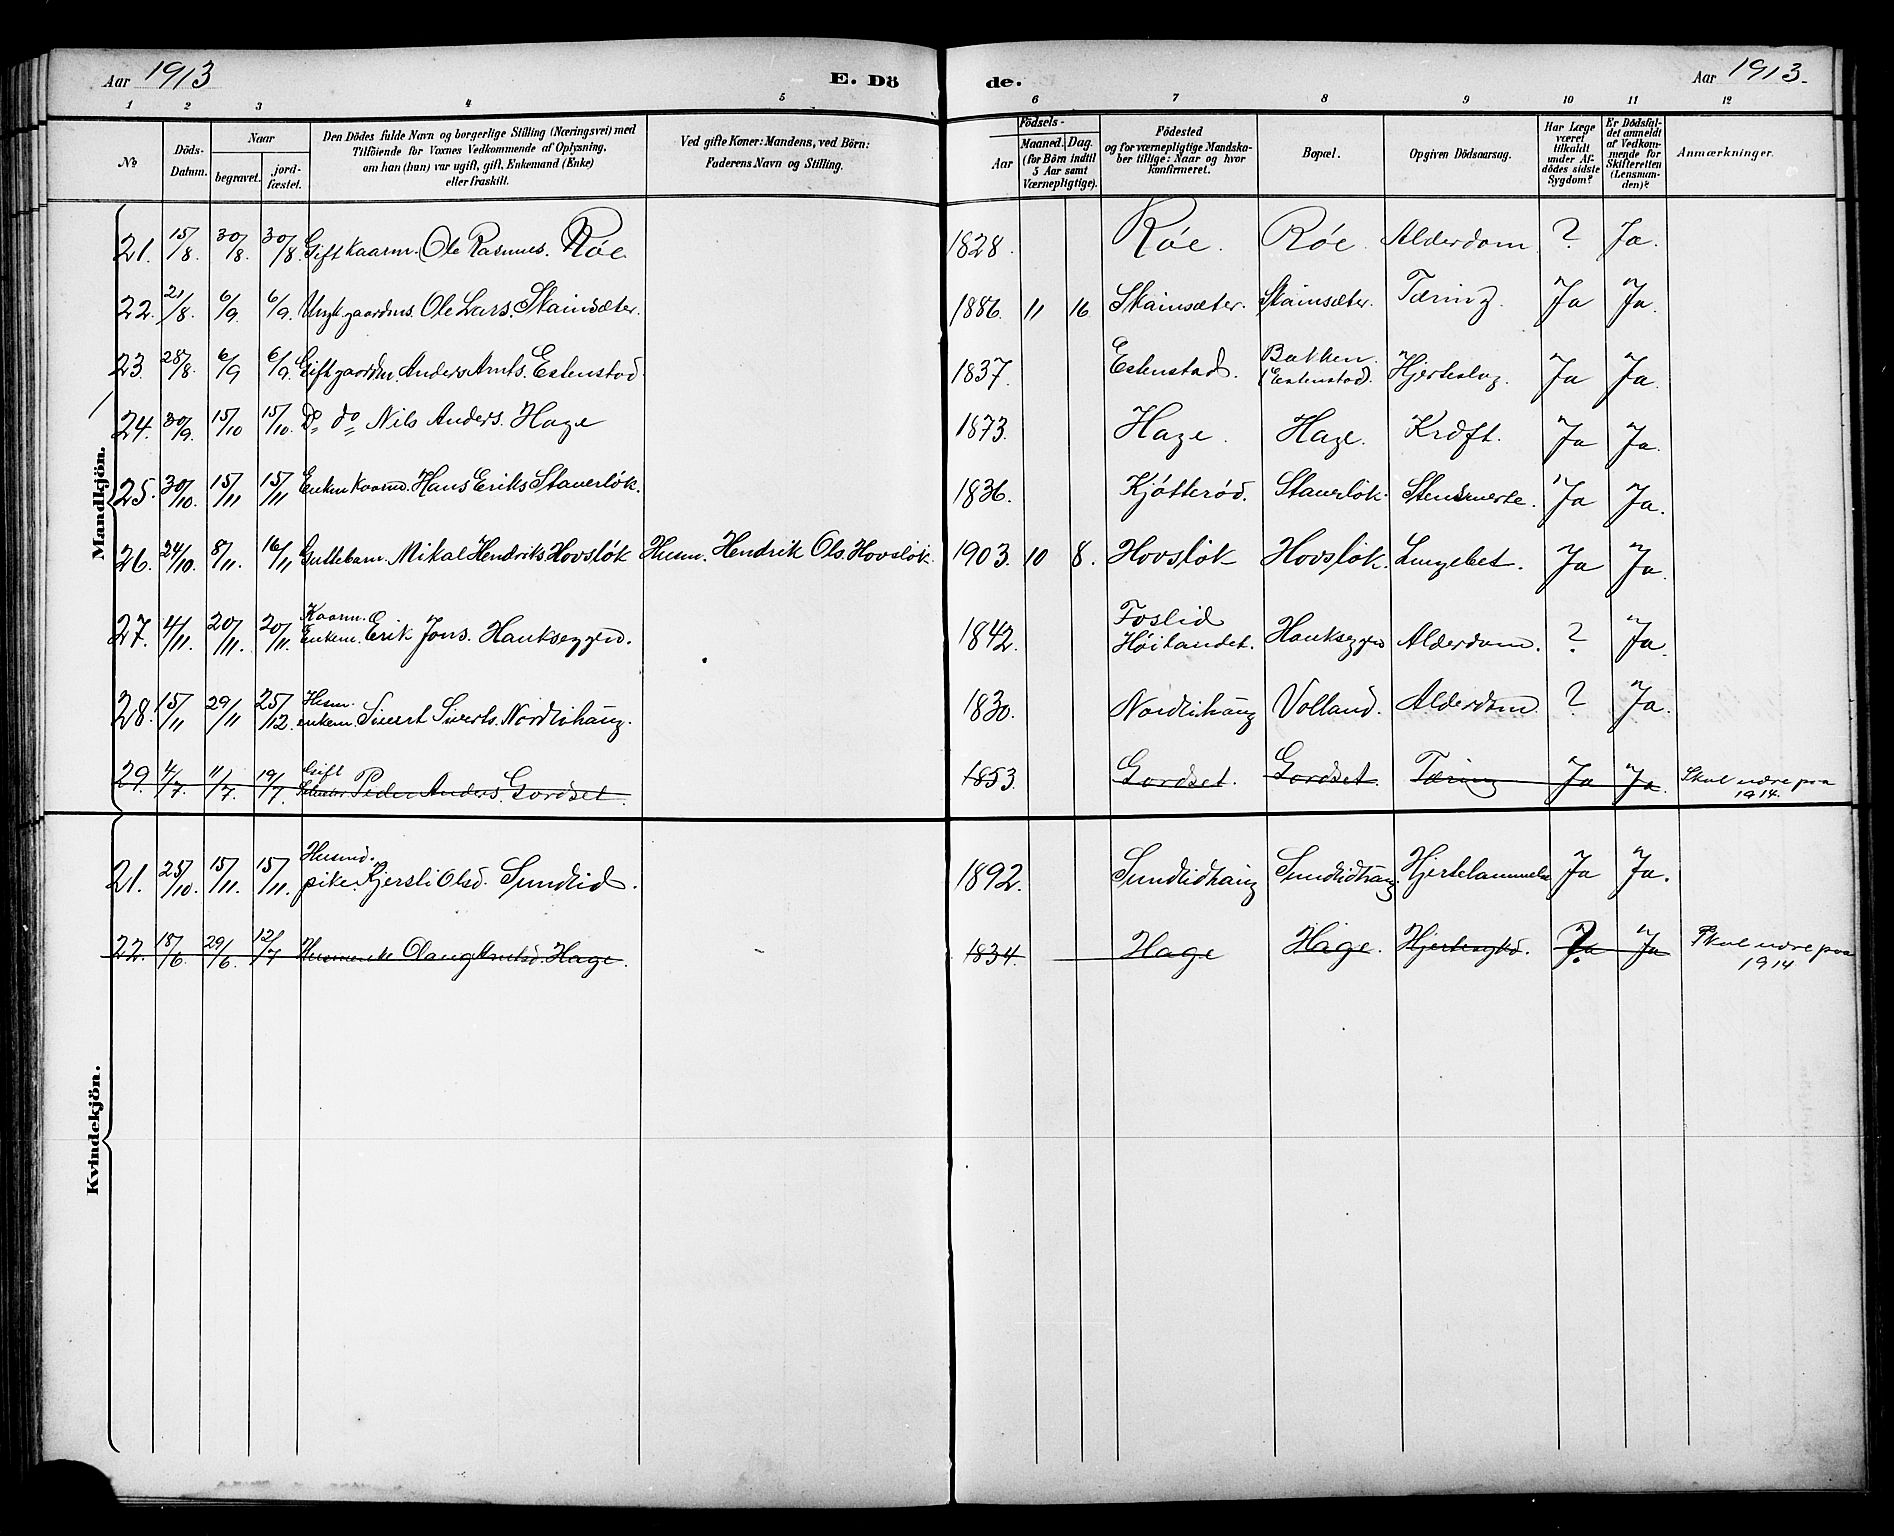 Aar 1913
E. Dö
de.
Aar 1913.
1 2 3 4 5 6 7 8 9 10 11 12
No
Döds-Datum.
Naar
begravet.
jord-fæstet.
Den Dödes fulde Navn og borgerlige Stilling (Næringsvei) med
Tilföiende for Voxnes Vedkommende af Oplysning,
om han (hun) var ugift, gift, Enkemand (Enke)
eller fraskilt.
Ved gifte Koner: Mandens, ved Börn:
Faderens Navn og Stilling.
Födsels-
Aar
Maaned. Dag.
(for Börn indtil
5 Aar samt
Værnepligtige).
Födested
og for værnepligtige Mandska-
ber tillige: Naar og hvor
konfirmeret.
Bopæl.
Opgiven Dödsaarsag.
Har Læge
været
tilkaldt
under Af-
dödes sidste
Sygdom?
Er Dödsfal-
det anmeldt
af Vedkom-
mende for
Skifteretten
(Lensman-
den)?
Anmærkninger.
Mandkjön.
21. 15/8. 30/8. 30/8. Gift kaarm. Ole Rasmus. Röe 1828. Röe. Röe. Alderdom ? Ja.
22. 21/8. 6/9 6/9. Ungk. gaardms. Ole Lars. Stainsæter. 1886. 11 16 Stainsæter. Stainsæter. Tæring. Ja Ja.
23. 28/8. 6/9 6/9. Gift gaardm. Anders Arnts. Estenstad 1837. Estenstad. Bakken Estenstad. Hjerteslag. Ja Ja.
24. 30/9. 15/10 15/10. Do do Nils Anders. Hage 1873. Hage. Hage. Kræft. Ja Ja.
25. 30/10. 15/11 15/11 Enkem Kaarm. Hans Eriks Staverlök. 1836. Kjötteröd. Staverlök. Stensmerte. Ja Ja.
26. 24/10. 8/11. 16/11 Guttebarn. Mikal Hendriks. Hovslök Husm. Hendrik Ols. Hovslök. 1903. 10 8. Hovslök Hovslök. Lungebet. Ja Ja.
27. 4/11. 20/11. 20/11. Kaarm. Enkem. Erik Jons. Haukseggen. 1842. Foslid Höilandet. Haukseggen Alderdom. ? Ja.
28. 15/11 29/11 25/12. Husm. enkem. Sivert Siverts. Nordlihaug. 1830. Nordlihaug Volland. Alderdom ? Ja.
29. 4/7. 11/7. 19/7. Gift Peder Anders. Gordset. 1853. Gordset. Gordset. Tæring Ja Ja. Skal være paa 1914.
Kvindekjön.
21. 25/10. 15/11. 15/11. Husmd. pike. Kjersti Olsd. Sundlid. 1892. Sundlidhaug Sundlidhaug. Hjertelammelse Ja Ja.
22. 18/6. 29/6. 12/7 Husmenke Olaug Arntsd. Hage. 1834. Hage Hage. Hjertesygd. ? Ja Skal være paa 1914